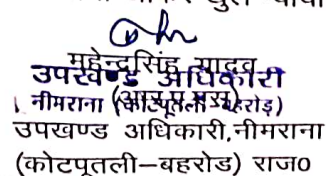 महेन्द्रसिंह यादव
उपखण्ड अधिकारी
नीमराना (कोटपूतली-बहरोड़)
(आर.ए.एस)
उपखण्ड अधिकारी,नीमराना
(कोटपूतली–बहरोड) राज0